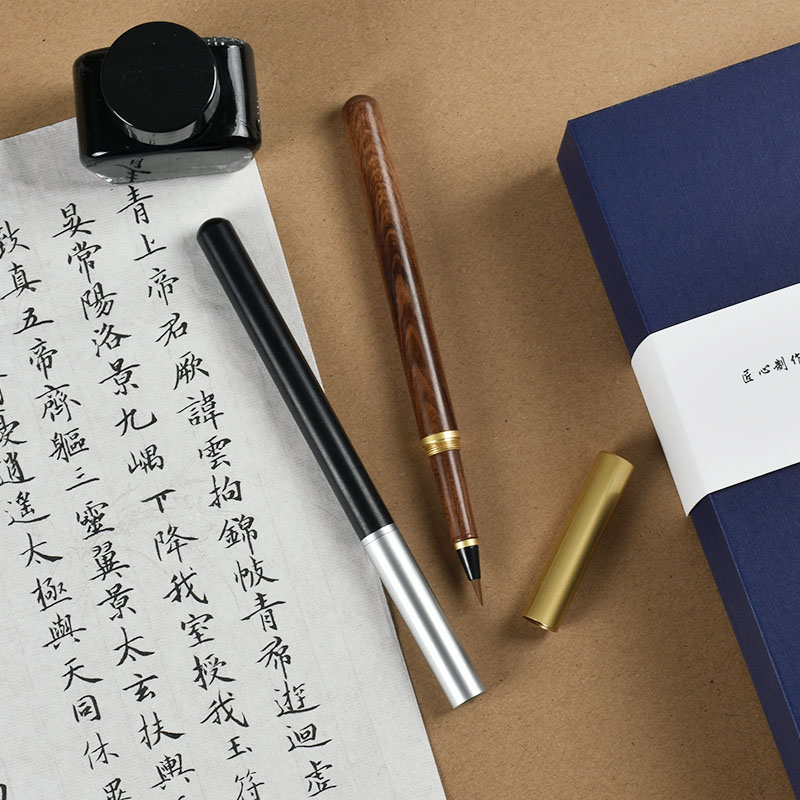 青上帝君厥諱雲拘錦帔青帬遊迴虛
晏常陽洛景九嵎下降我室授我玉符
致真五帝齊軀三靈翼景太玄扶轝
逍遙太極與天同休
匠心制作